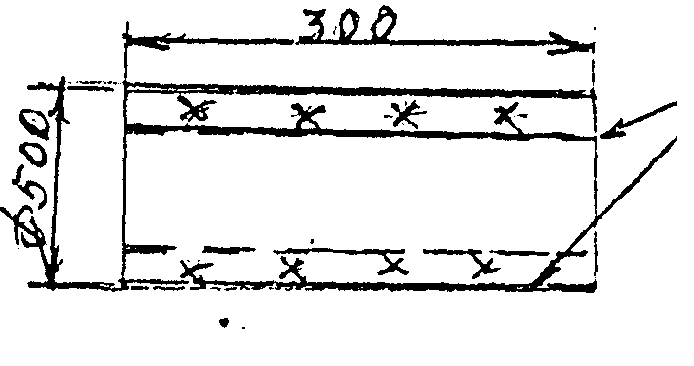 300
Ø500